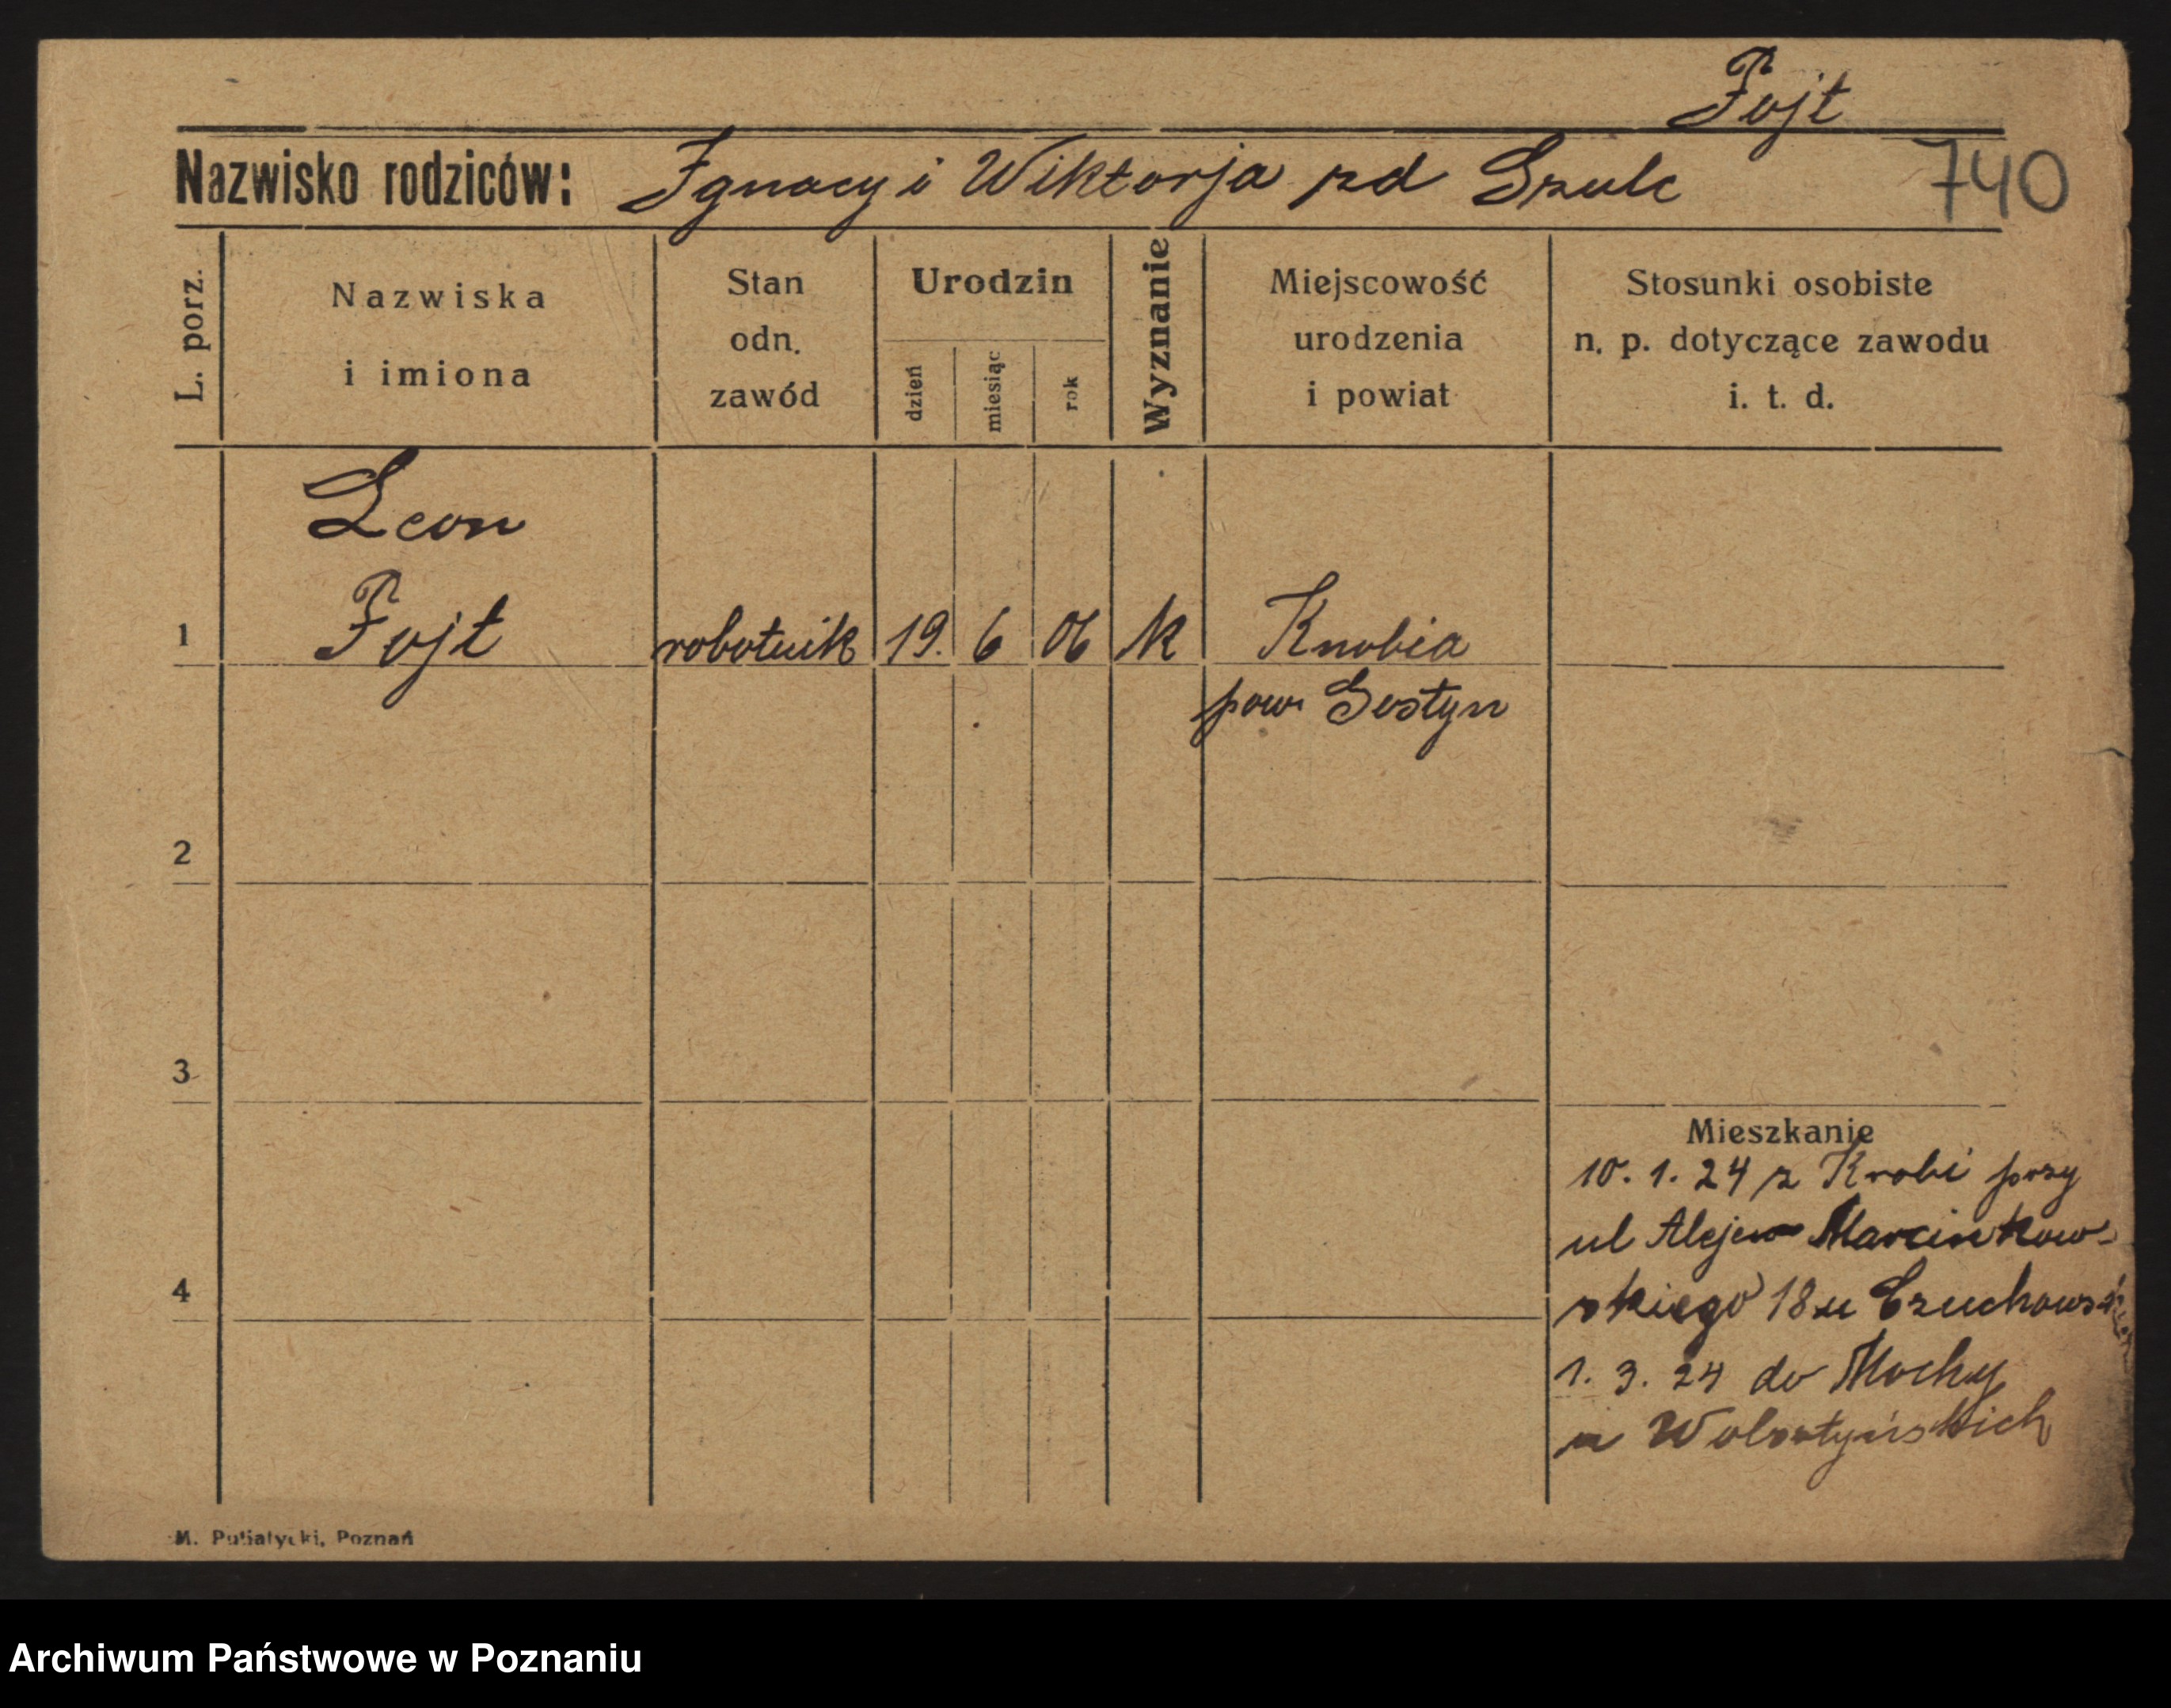 Fojt
Nazwisko rodziców: Ignacy i Wiktorja zd Szulc 740
L. porz.
Nazwiska
i imiona
Stan
odn.
zawód
Urodzin
dzień
miesiąc
rok
Wyznanie
Miejscowość
urodzenia
i powiat
Stosunki osobiste
n. p. dotyczące zawodu
i. t. d.
Leon
1 Fojt robotnik 19. 6 06 K Krobia
pow Gostyn
2
3
Mieszkanie
10. 1. 24 z Krobi przy
ul Aleje Marcinkow-
4
skiego 18 u
1. 3. 24 do Mochy
u Wolsztyńskich
M. Putiatycki, Poznań
Archiwum Państwowe w Poznaniu